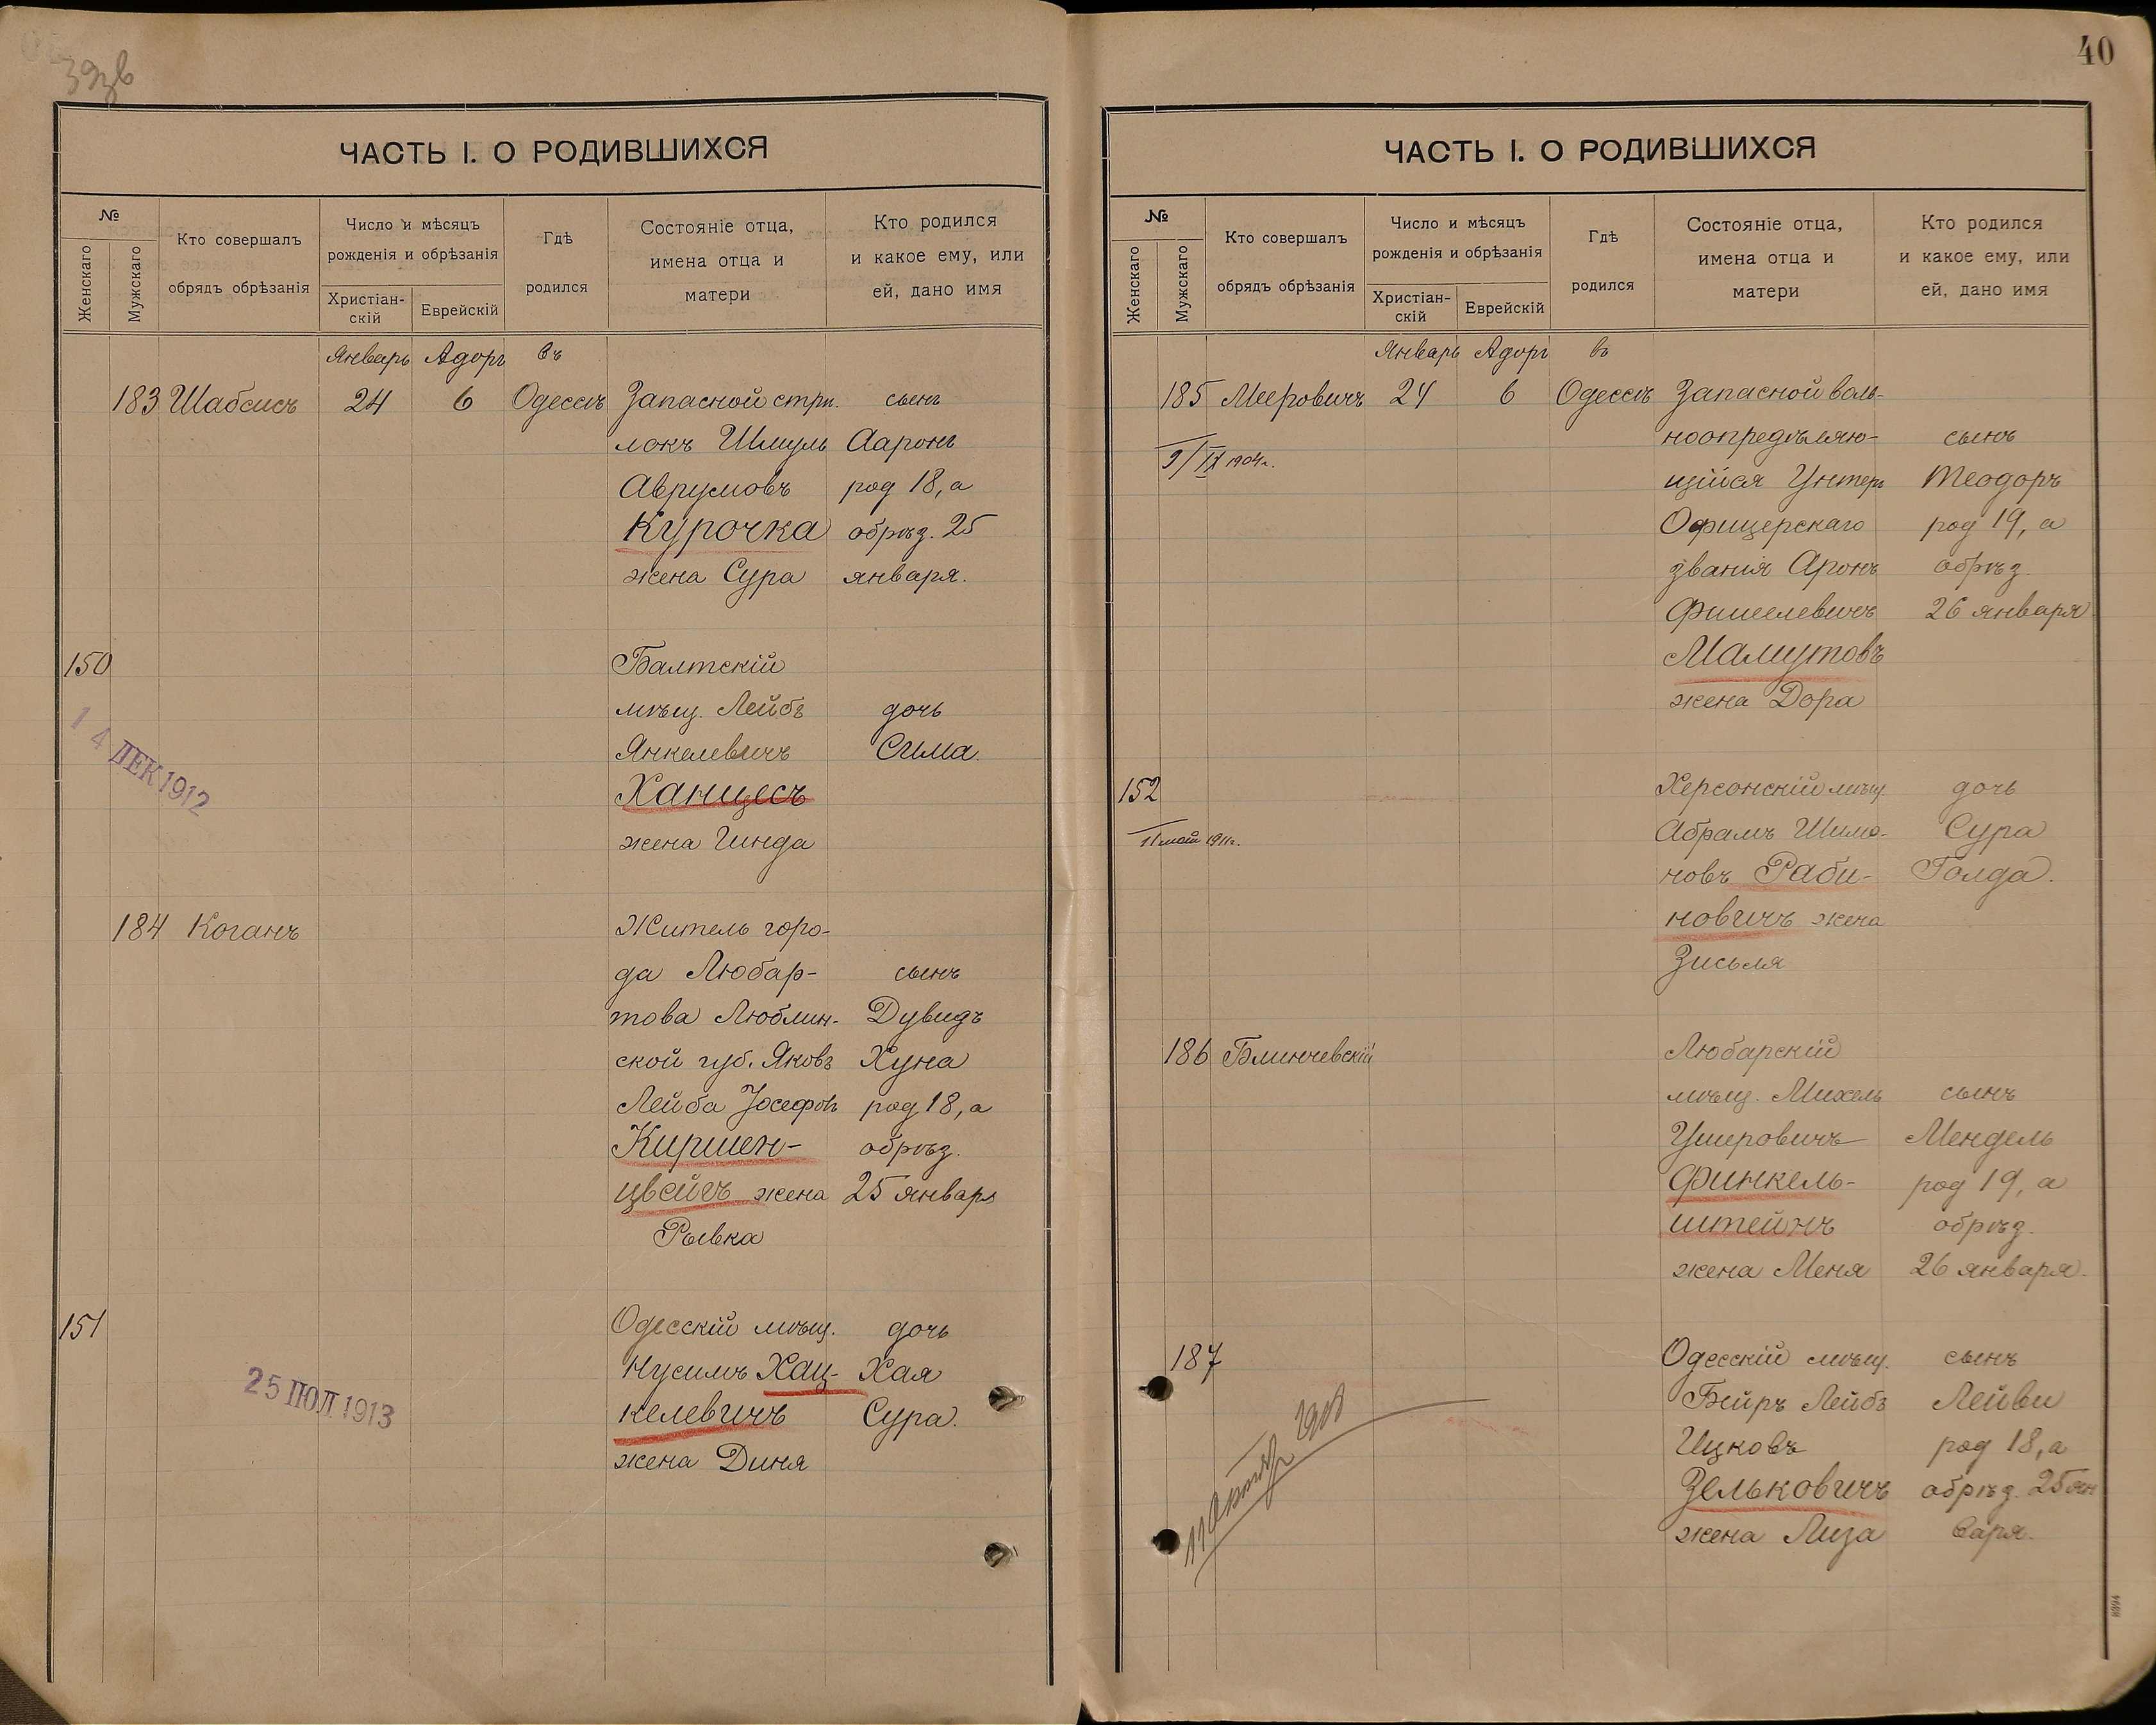 39зв
ЧАСТЬ I. О РОДИВШИХСЯ
№
Женскаго
Мужскаго
Кто совершалъ
обрядъ обрѣзанія
Число и мѣсяцъ
рожденія и обрѣзанія
Христіан-
скій
Еврейскій
Гдѣ
родился
Состояніе отца,
имена отца и
матери
Кто родился
и какое ему, или
ей, дано имя
Январь Адоръ въ
183 Шабсисъ 24 6 Одессѣ Запасной стрѣ. сынъ
локъ Шмуль Ааронъ
Аврумовъ род 18, а
Курочка обрѣз. 25
жена Сура января.
150 Балтскій
мѣщ. Лейбъ дочь
Янкелевичъ Сима.
14 ДЕК 1912
Ханцесъ
жена Гинда
184 Коганъ Житель горо-
да Любар- сынъ
това Люблин- Дувидъ
ской губ. Яковъ Хуна
Лейба Іосефовъ род 18, а
Киршен- обрѣз.
цвейгъ жена 25 января
Рывка
151 Одесскій мѣщ. дочь
Нусимъ Хац- Хая
25 ІЮЛ 1913
келевичъ Сура.
жена Диня
40
ЧАСТЬ I. О РОДИВШИХСЯ
№
Женскаго
Мужскаго
Кто совершалъ
обрядъ обрѣзанія
Число и мѣсяцъ
рожденія и обрѣзанія
Христіан-
скій
Еврейскій
Гдѣ
родился
Состояніе отца,
имена отца и
матери
Кто родился
и какое ему, или
ей, дано имя
Январь Адоръ въ
185 Мееровичъ 24 6 Одессѣ Запасной воль-
ноопредѣляю- сынъ
9/IX 1904г.
щійся Унтеръ Теодоръ
Офицерскаго род 19, а
званія Аронъ обрѣз.
Фишелевичъ 26 января.
Мамутовъ
жена Дора
152 Херсонскій мѣщ. дочь
11 мая 1911г.
Абрамъ Шимо- Сура
новъ Раби- Голда.
новичъ жена
Зисля
186 Блинчевскій Любарскій
мѣщ. Михель сынъ
Ушеровичъ Мендель
Финкель- род 19, а
штейнъ обрѣз.
жена Меня 26 января.
187 Одесскій мѣщ. сынъ
Бейръ Лейбъ Лейви
Ицковъ род 18, а
Зельковичъ обрѣз. 25 ян
жена Лиза варя.